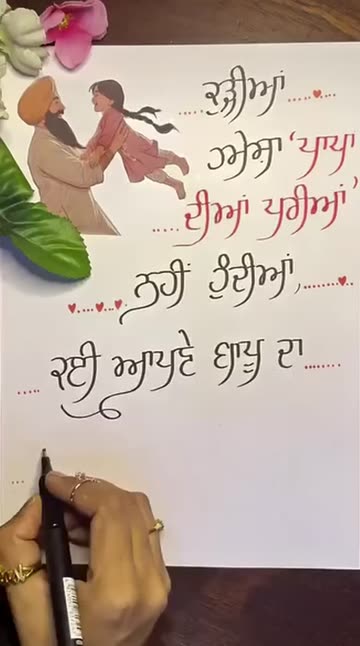 ਕੁੜੀਆਂ
ਹਮੇਸ਼ਾ 'ਪਾਪਾ
ਦੀਆਂ ਪਰੀਆਂ'
ਨਹੀਂ ਹੁੰਦੀਆਂ,
ਕਈ ਆਪਣੇ ਬਾਪੂ ਦਾ